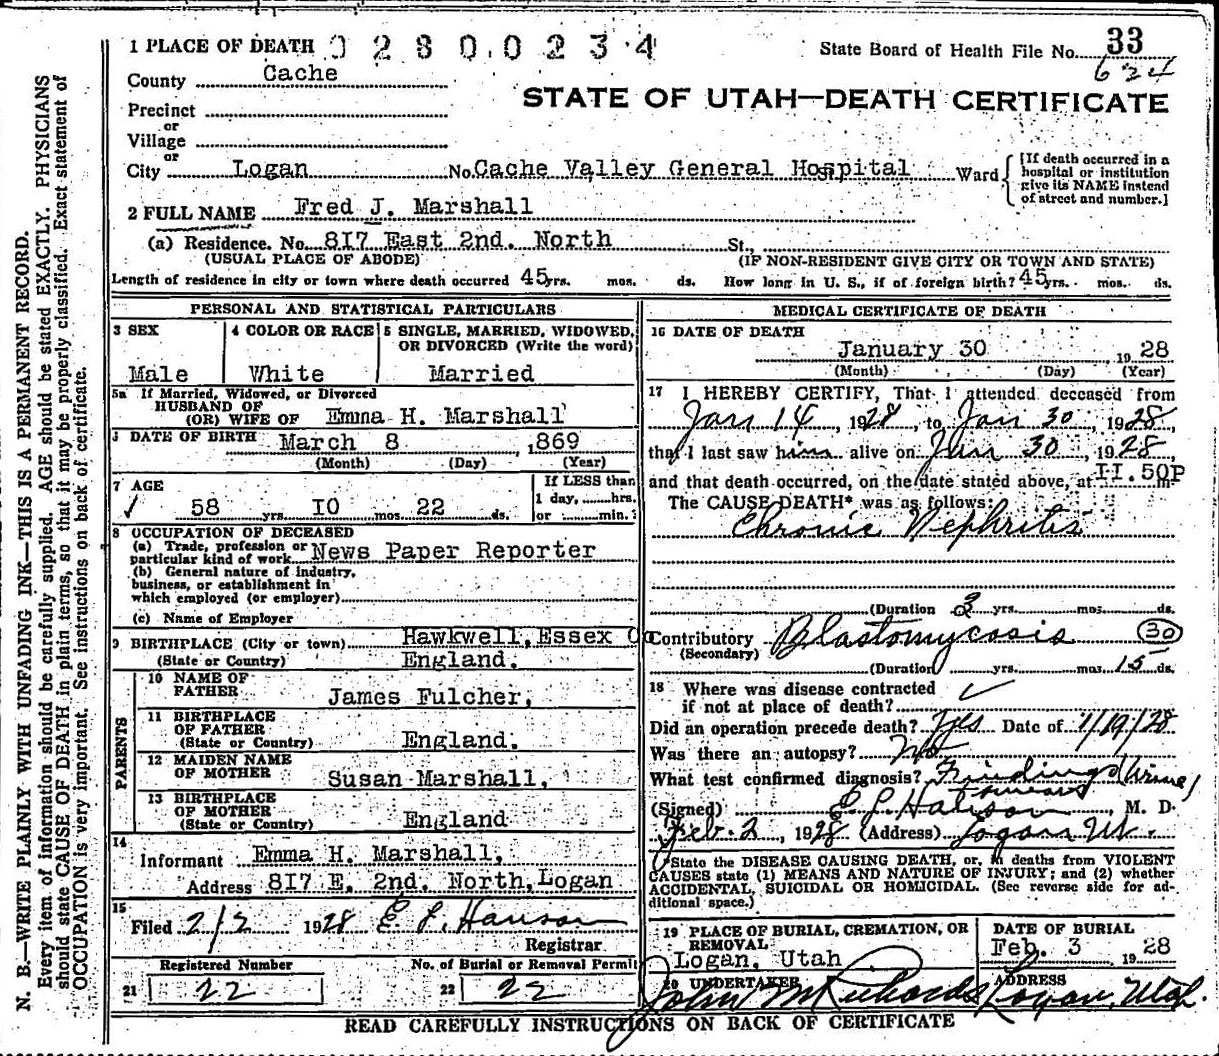 1 PLACE OF DEATH 02800234 State Board of Health File No. 33
624
County Cache
STATE OF UTAH—DEATH CERTIFICATE
Precinct
or
Village
or
City Logan No. Cache Valley General Hospital Ward [If death occurred in a hospital or institution give its NAME instead of street and number.]
2 FULL NAME Fred J. Marshall
(a) Residence. No. 8I7 East 2nd. North St.,
(USUAL PLACE OF ABODE) (IF NON-RESIDENT GIVE CITY OR TOWN AND STATE)
Length of residence in city or town where death occurred 45 yrs. mos. ds. How long in U. S., if of foreign birth? 45 yrs. mos. ds.
PERSONAL AND STATISTICAL PARTICULARS
3 SEX 4 COLOR OR RACE 5 SINGLE, MARRIED, WIDOWED, OR DIVORCED (Write the word)
Male White Married
5a If Married, Widowed, or Divorced
HUSBAND OF
(OR) WIFE OF Emma H. Marshall
DATE OF BIRTH March 8 , 1869
(Month) (Day) (Year)
7 AGE If LESS than
1 day, hrs.
58 yrs. I0 mos. 22 ds. or min.?
8 OCCUPATION OF DECEASED
(a) Trade, profession or
particular kind of work News Paper Reporter
(b) General nature of industry,
business, or establishment in
which employed (or employer)
(c) Name of Employer
9 BIRTHPLACE (City or town) Hawkwell, Essex Co
(State or Country) England.
PARENTS
10 NAME OF
FATHER James Fulcher,
11 BIRTHPLACE
OF FATHER
(State or Country) England.
12 MAIDEN NAME
OF MOTHER Susan Marshall,
13 BIRTHPLACE
OF MOTHER
(State or Country) England
14
Informant Emma H. Marshall,
Address 8I7 E. 2nd. North, Logan
15
Filed 2/2 1928 E. L. Hanson
Registrar
Registered Number No. of Burial or Removal Permit
21 22 22 22
MEDICAL CERTIFICATE OF DEATH
16 DATE OF DEATH
January 30 , 1928
(Month) (Day) (Year)
17 I HEREBY CERTIFY, That I attended deceased from
Jan 14, 1928, to Jan 30, 1928,
that I last saw him alive on Jan 30, 1928,
and that death occurred, on the date stated above, at II.50P m.
The CAUSE DEATH* was as follows:
Chronic Nephritis
(Duration yrs. mos. ds.
Contributory Blastomycosis 30
(Secondary)
(Duration yrs. mos. 15 ds.
18 Where was disease contracted
if not at place of death?
Did an operation precede death? Yes Date of 1/19/28
Was there an autopsy? No
What test confirmed diagnosis? Findings Urine
smears
(Signed) E. L. Hanson, M. D.
Feb. 2, 1928 (Address) Logan Ut.
*State the DISEASE CAUSING DEATH, or, in deaths from VIOLENT
CAUSES state (1) MEANS AND NATURE OF INJURY; and (2) whether
ACCIDENTAL, SUICIDAL OR HOMICIDAL. (See reverse side for ad-
ditional space.)
19 PLACE OF BURIAL, CREMATION, OR REMOVAL DATE OF BURIAL
Logan, Utah Feb. 3 1928
20 UNDERTAKER ADDRESS
John M Richards Logan, Utah.
READ CAREFULLY INSTRUCTIONS ON BACK OF CERTIFICATE
N. B.—WRITE PLAINLY WITH UNFADING INK—THIS IS A PERMANENT RECORD.
Every item of information should be carefully supplied. AGE should be stated EXACTLY. PHYSICIANS
should state CAUSE OF DEATH in plain terms, so that it may be properly classified. Exact statement of
OCCUPATION is very important. See instructions on back of certificate.